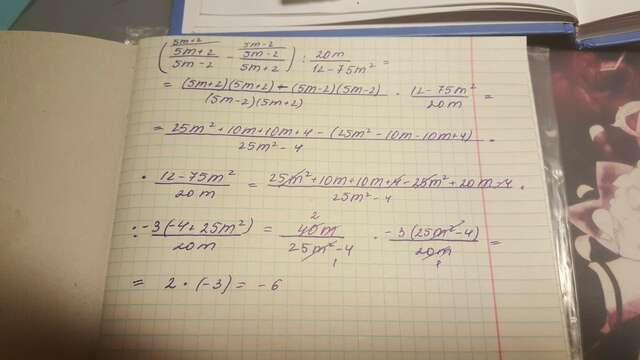 ( (5m+2)/(5m-2) - (5m-2)/(5m+2) ) : 20m/(12-75m²) =
= ((5m+2)(5m+2) - (5m-2)(5m-2))/((5m-2)(5m+2)) · (12-75m²)/(20m) =
= (25m²+10m+10m+4-(25m²-10m-10m+4))/(25m²-4) ·
· (12-75m²)/(20m) = (25m²+10m+10m+4-25m²+20m-4)/(25m²-4) ·
: -3(-4+25m²)/(20m) = 40m/(25m²-4) · -3(25m²-4)/(20m) =
= 2 · (-3) = -6